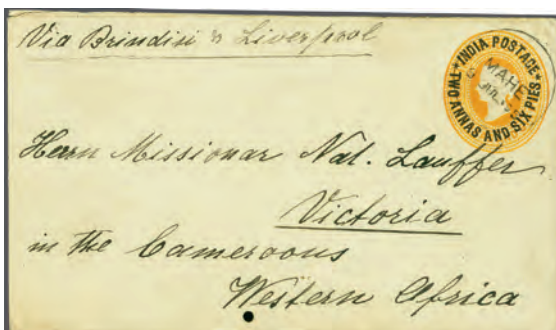 Via Brindisi & Liverpool
INDIA POSTAGE
TWO ANNAS AND SIX PIES
MAHE
Herrn Missionar Nat. Lauffer
Victoria
in the Cameroons
Western Africa